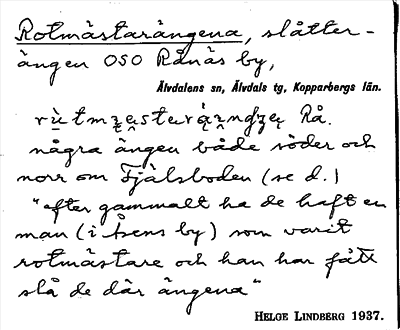 Rotmästarängena, slåtter-
ängen OSO Rånäs by,
Älvdalens sn, Älvdals tg, Kopparbergs län.
Rå.
några ängen både söder och
norr om Fjälsboden (se d.)
"efter gammalt ha de haft en
man (i Åsens by) som varit
rotmästare och han har fått
slå de där ängena"
HELGE LINDBERG 1937.